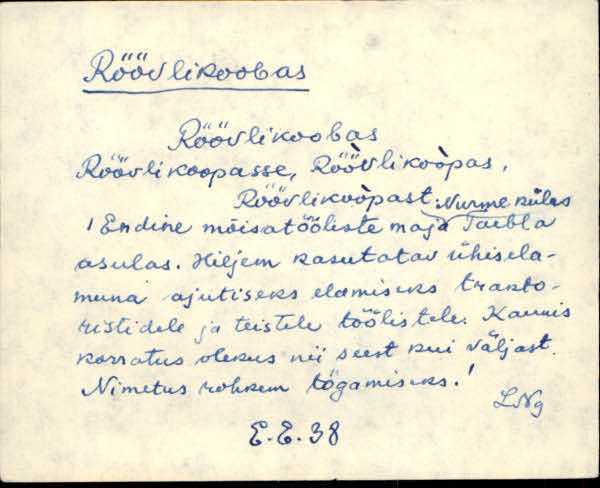 Röövlikoobas
Röövlikoobas
Röövlikoopasse, Röövlikoòpas,
Röövlikoòpast. Nurme külas
! Endine mõisatööliste maja Taebla
asulas. Hiljem kasutatav ühisela-
muna ajutiseks elamiseks trakto-
ristidele ja teistele töölistele. Kaunis
korratus olekus nii seest kui väljast.
Nimetus rohkem tögamiseks.!
LNg
E.E.38